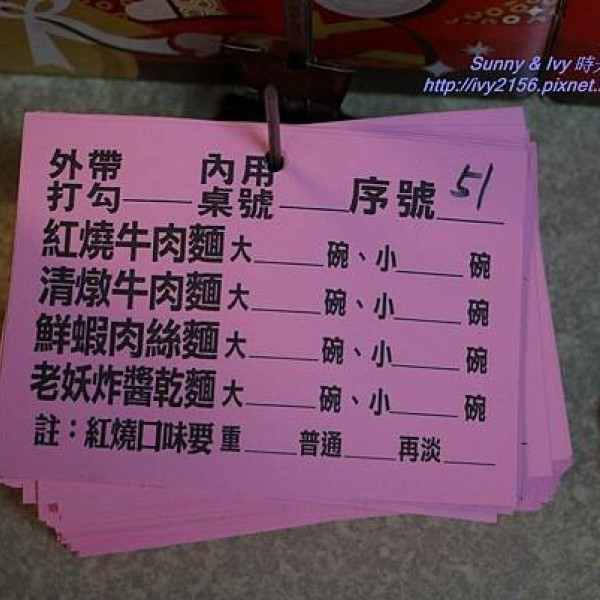 Sunny & Ivy 時
http://ivy2156.pixnet.
外帶 內用
打勾____ 桌號____ 序號 51
紅燒牛肉麵 大____碗、小____碗
清燉牛肉麵 大____碗、小____碗
鮮蝦肉絲麵 大____碗、小____碗
老妖炸醬乾麵 大____碗、小____碗
註：紅燒口味要 重____ 普通____ 再淡____